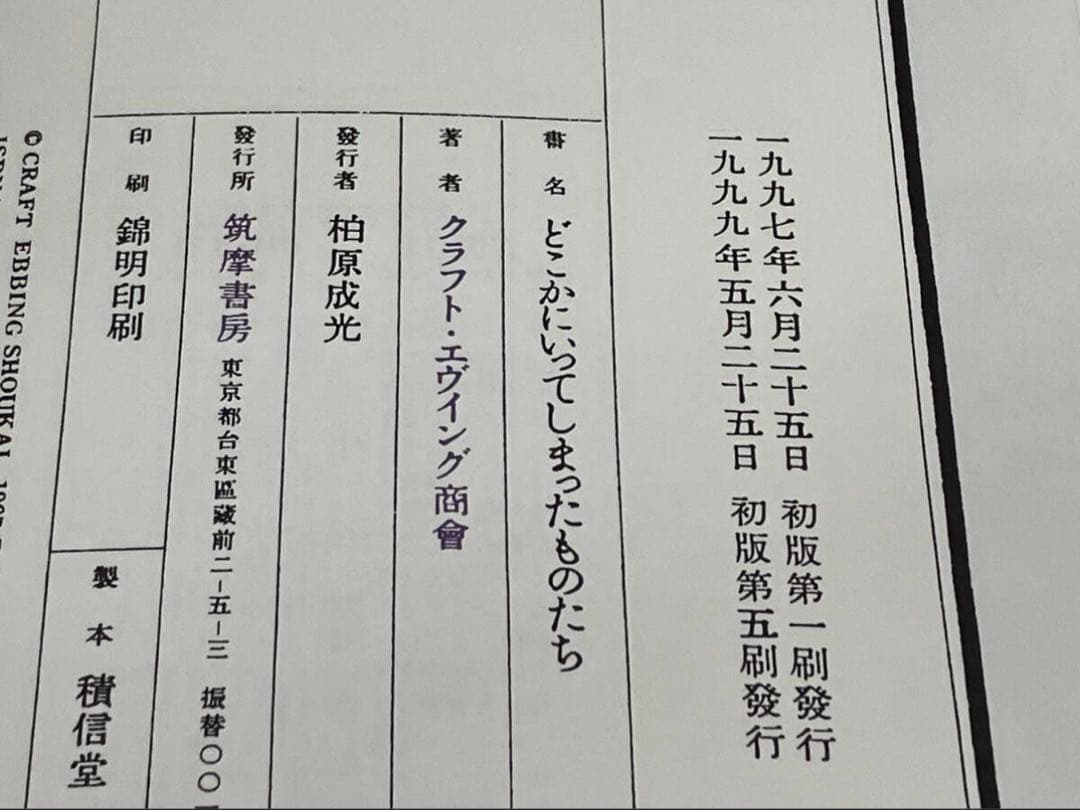 一九九七年六月二十五日 初版第一刷發行
一九九九年五月二十五日 初版第五刷發行
書名 どこかにいってしまったものたち
著者 クラフト・エヴィング商會
發行者 柏原成光
發行所 筑摩書房 東京都台東區藏前二-五-三 振替〇〇一
印刷 錦明印刷
製本 積信堂
©CRAFT EBBING SHOUKAI